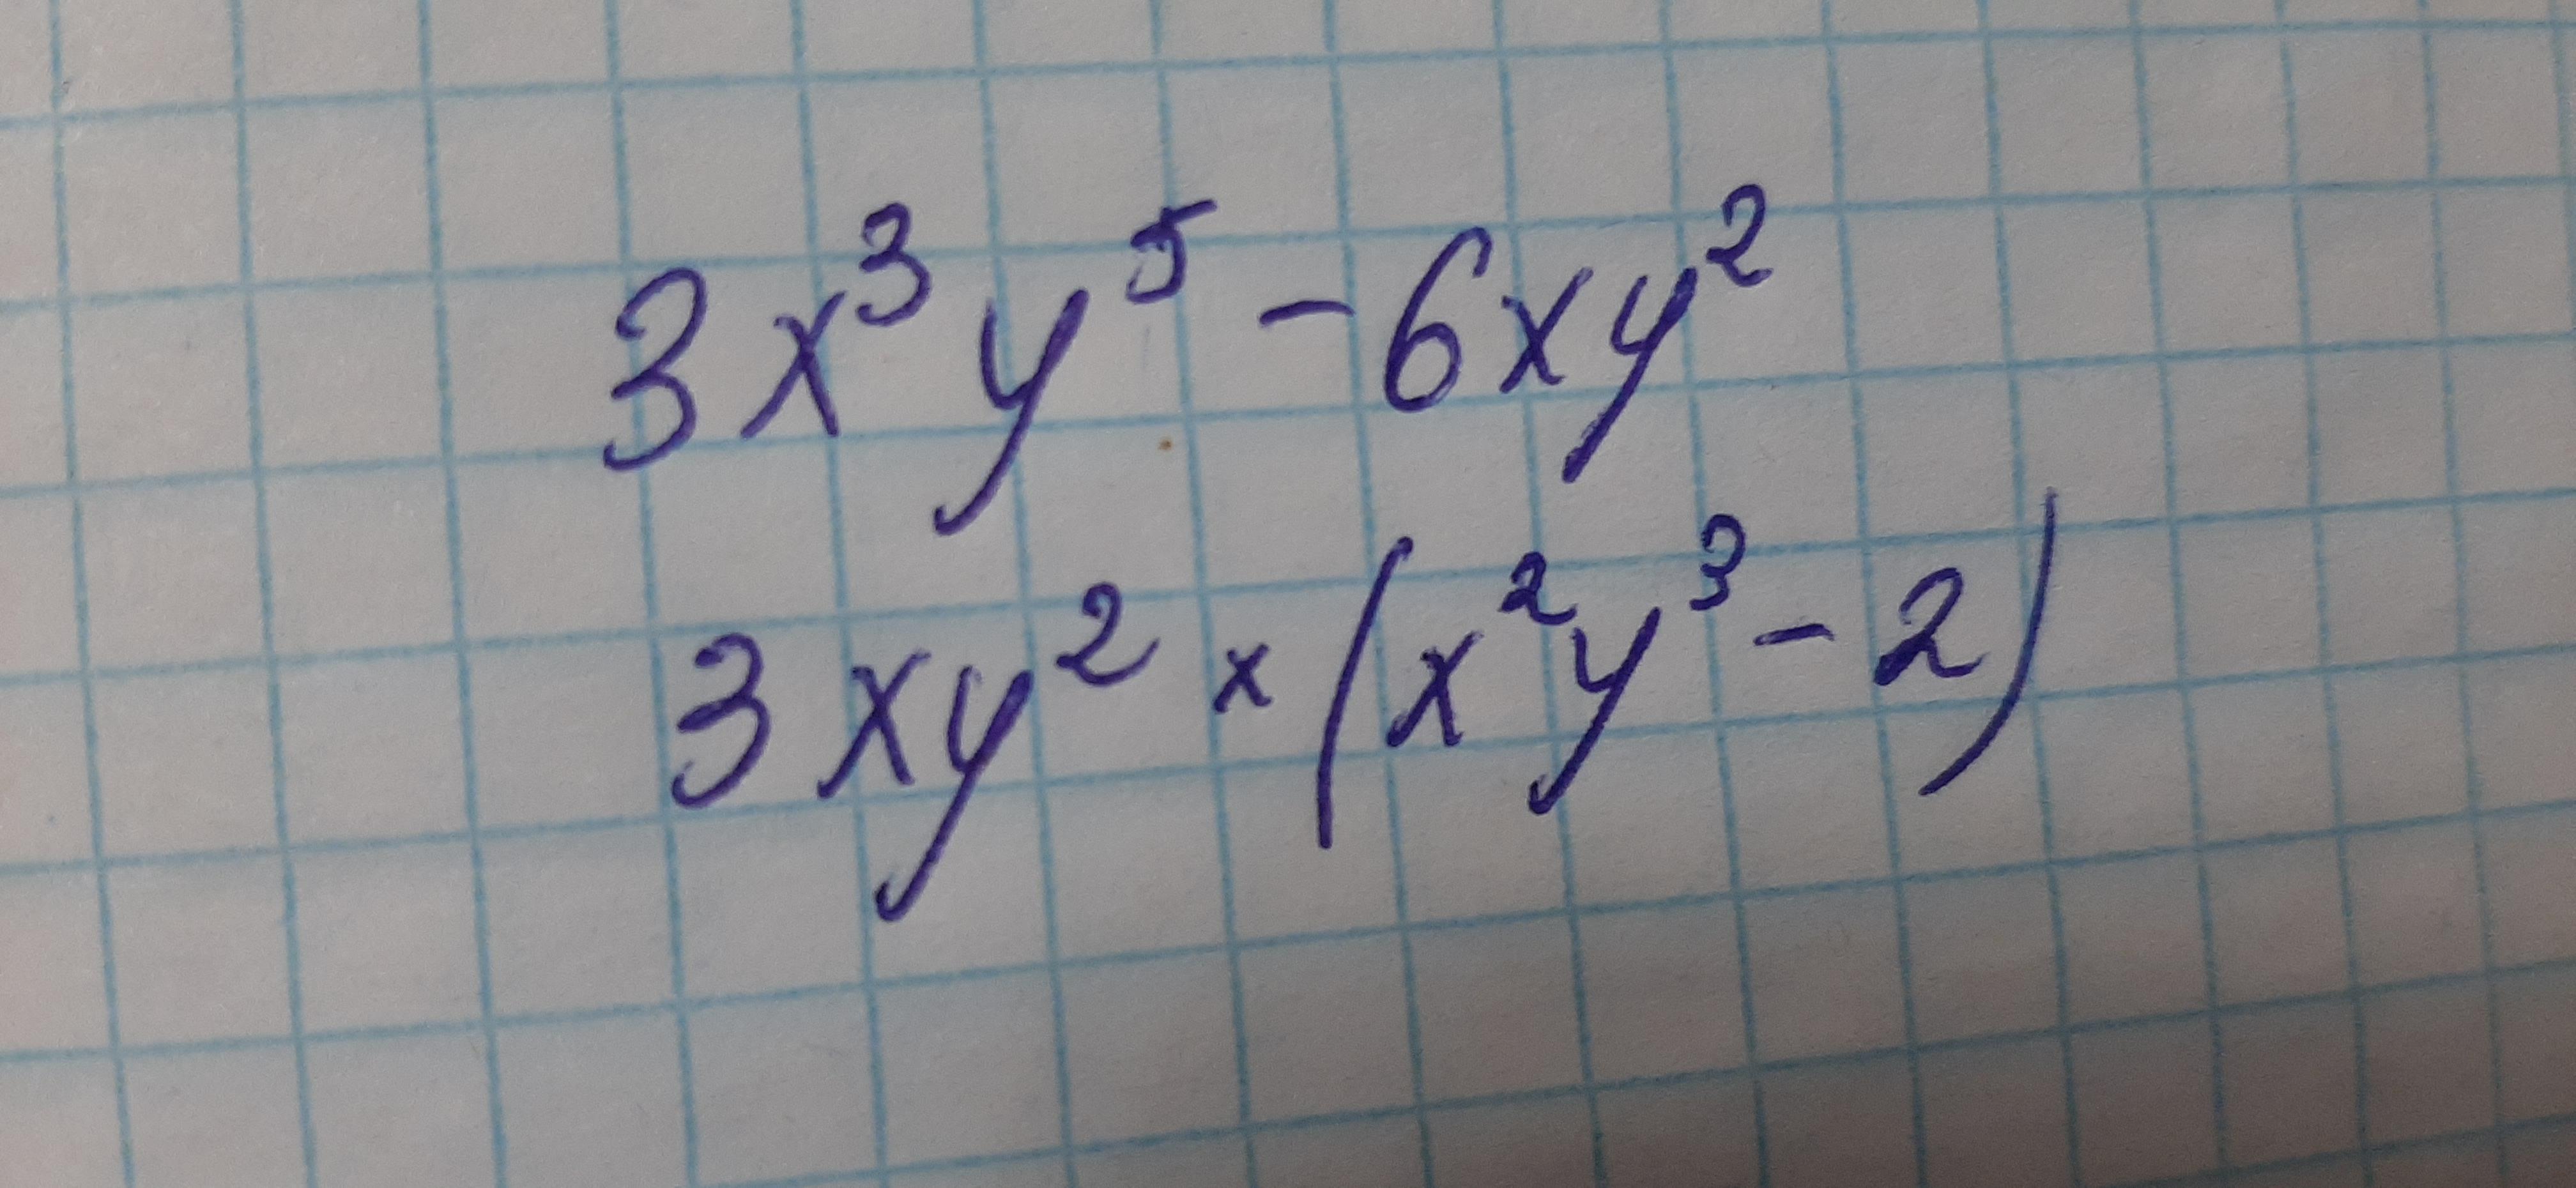 3x³y⁵ - 6xy²
3xy² × (x²y³ - 2)